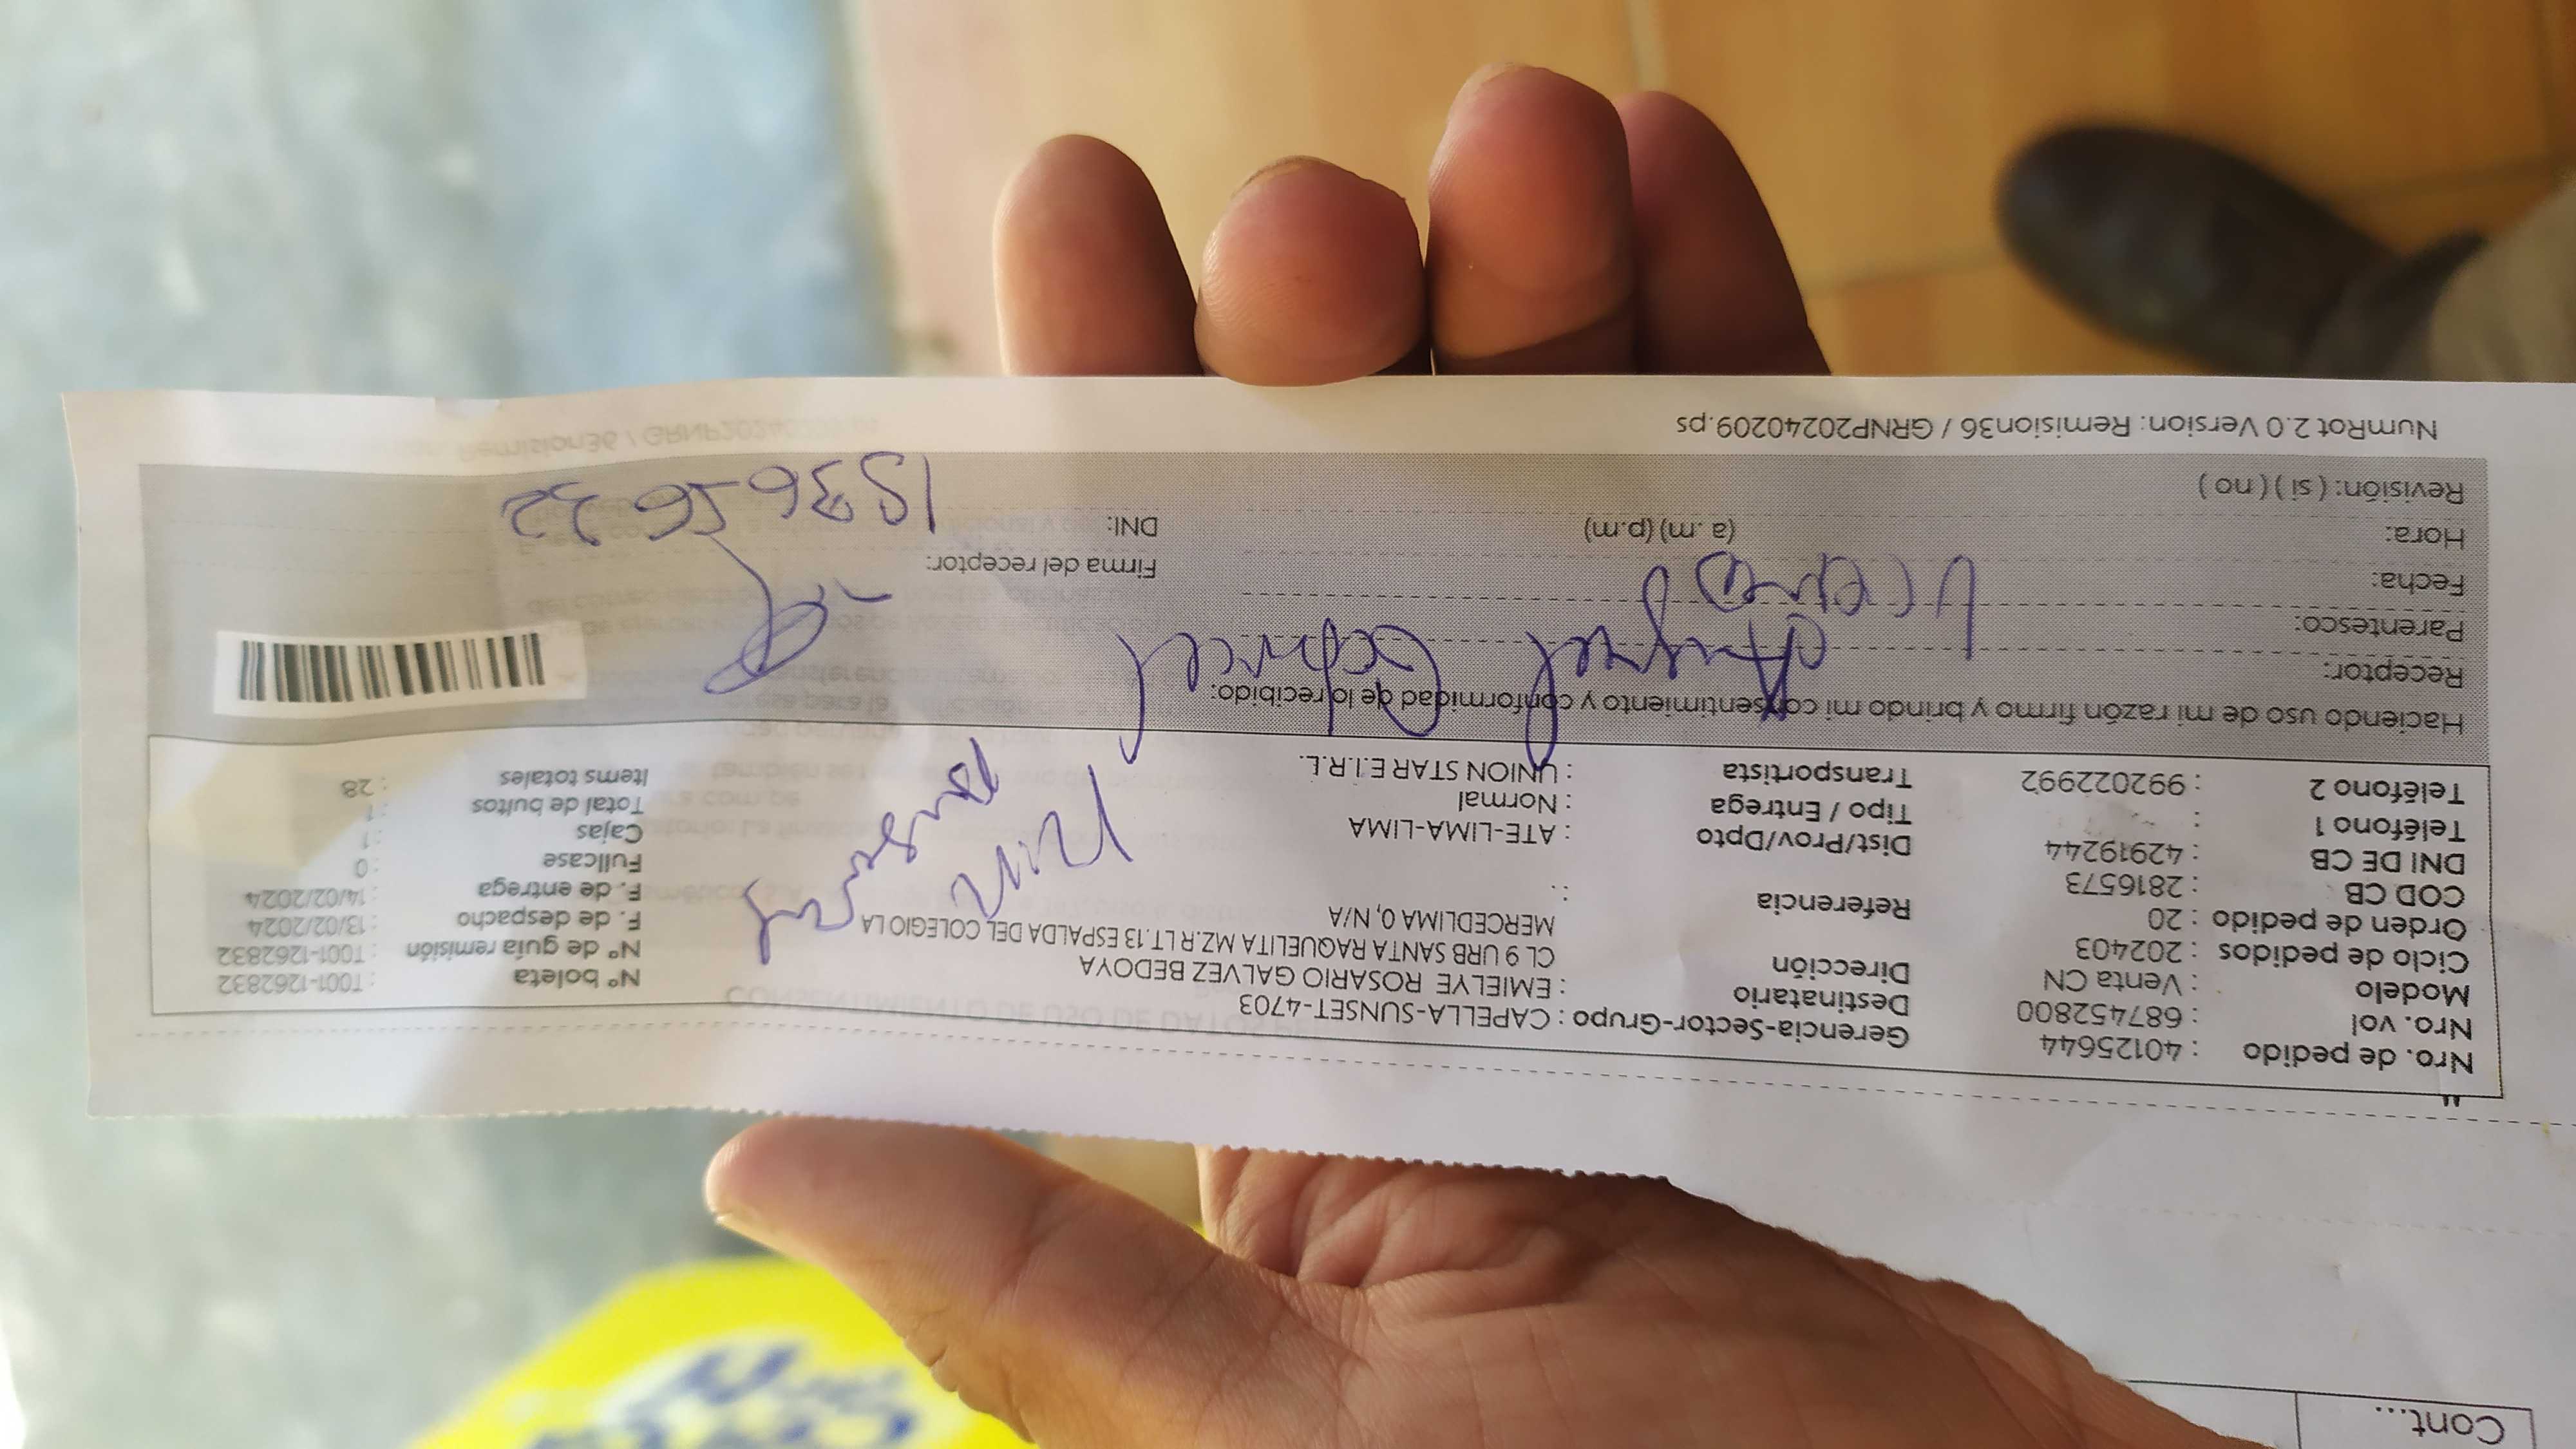 Nro. de pedido : 40125644
Nro. vol : 687452800
Modelo : Venta CN
Ciclo de pedidos : 202403
Orden de pedido : 20
COD CB : 2816573
DNI DE CB : 42919244
Teléfono 1 :
Teléfono 2 : 992022992
Gerencia-Sector-Grupo : CAPELLA-SUNSET-4703
Destinatario : EMIELYE ROSARIO GALVEZ BEDOYA
Dirección CL 9 URB SANTA RAQUELITA MZ.R LT.13 ESPALDA DEL COLEGIO LA
MERCEDLIMA 0, N/A
Referencia : .
Dist/Prov/Dpto : ATE-LIMA-LIMA
Tipo / Entrega : Normal
Transportista : UNION STAR E.I.R.L.
N° boleta : T001-1262832
N° de guía remisión : T001-1262832
F. de despacho : 13/02/2024
F. de entrega : 14/02/2024
Fullcase : 0
Cajas : 1
Total de bultos : 1
Items totales : 28
Haciendo uso de mi razón firmo y brindo mi consentimiento y conformidad de lo recibido:
Receptor:
Parentesco:
Fecha:
Hora: (a.m) (p.m)
Revisión: ( si ) ( no )
Firma del receptor:
DNI: 15365632
NumRot 2.0 Version: Remision36 / GRNP20240209.ps
Cont...